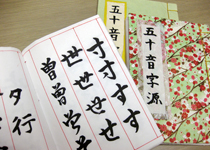 寸寸すす
世世せせ
曽曽
夕行
五十音字源
五十音字源